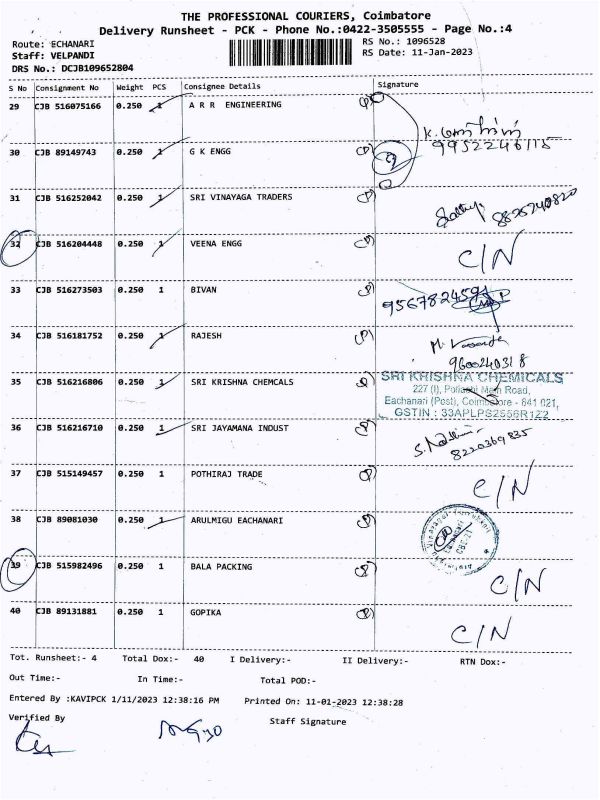 THE PROFESSIONAL COURIERS, Coimbatore
Delivery Runsheet - PCK - Phone No.:0422-3505555 - Page No.:4
Route: ECHANARI
RS No.: 1096528
Staff: VELPANDI
RS Date: 11-Jan-2023
DRS No.: DCJB109652804
S No Consignment No Weight PCS Consignee Details Signature
29 CJB 516075166 0.250 1 A R R ENGINEERING
9952246115
30 CJB 89149743 0.250 1 G K ENGG
31 CJB 516252042 0.250 1 SRI VINAYAGA TRADERS
32 CJB 516204448 0.250 1 VEENA ENGG C/N
33 CJB 516273503 0.250 1 BIVAN
34 CJB 516181752 0.250 1 RAJESH
9600240318
35 CJB 516216806 0.250 1 SRI KRISHNA CHEMCALS
SRI KRISHNA CHEMICALS
227 (I), Pollachi Main Road,
Eachanari (Post), Coimbatore - 641 021,
GSTIN : 33APLPS2556R1Z2
36 CJB 516216710 0.250 1 SRI JAYAMANA INDUST
8220369835
37 CJB 515149457 0.250 1 POTHIRAJ TRADE C/N
38 CJB 89081030 0.250 1 ARULMIGU EACHANARI
39 CJB 515982496 0.250 1 BALA PACKING C/N
40 CJB 89131881 0.250 1 GOPIKA C/N
Tot. Runsheet:- 4 Total Dox:- 40 I Delivery:- II Delivery:- RTN Dox:-
Out Time:- In Time:- Total POD:-
Entered By :KAVIPCK 1/11/2023 12:38:16 PM Printed On: 11-01-2023 12:38:28
Verified By Staff Signature